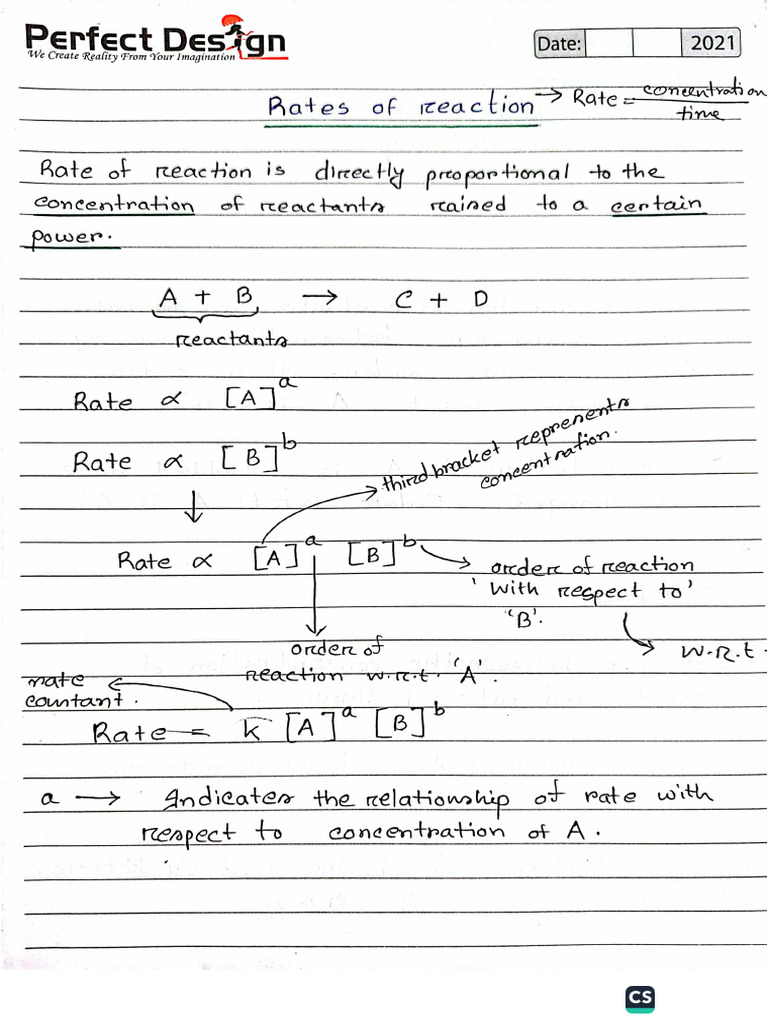 Perfect Design
We Create Reality From Your Imagination
Date: 2021
Rates of reaction → Rate = concentration / time
Rate of reaction is directly proportional to the
concentration of reactants raised to a certain
power.
A + B → C + D
reactants
Rate ∝ [A]^a
Rate ∝ [B]^b
third bracket represents
concentration.
↓
Rate ∝ [A]^a [B]^b
order of reaction
'with respect to'
'B'.
→ w.r.t.
order of
reaction w.r.t. 'A'.
rate
constant.
Rate = k [A]^a [B]^b
a → Indicates the relationship of rate with
respect to concentration of A.
CS